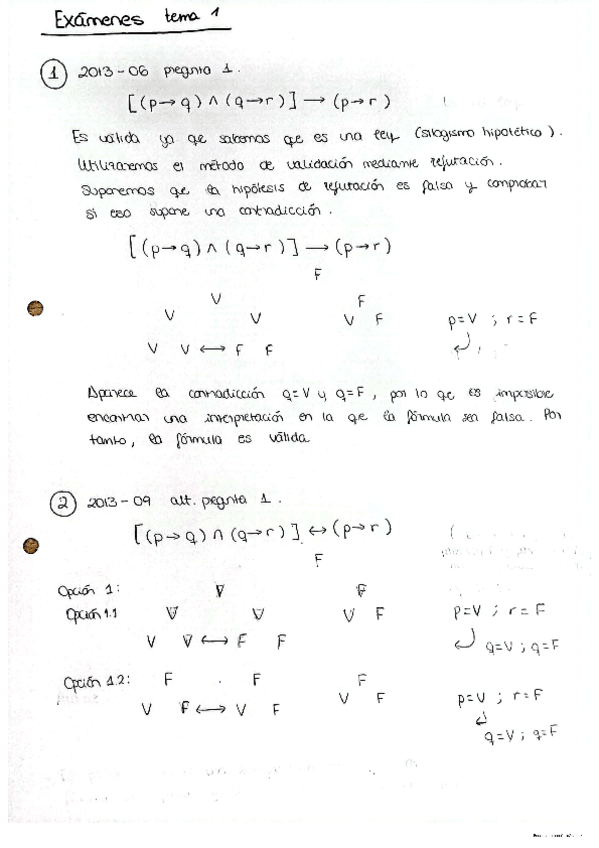 Exámenes tema 1
1 2013-06 pregnta 1.
[(p→q) ∧ (q→r)] → (p→r)
Es válida ya qe sabemos qe es una ley (silogismo hipotético).
Utilizaremos el método de validación mediante refutación.
Suponemos qe la hipótesis de refutación es falsa y comprobar
si eso supone una contradicción.
[(p→q) ∧ (q→r)] → (p→r)
F
V F
V V V F p=V ; r=F
V V ↔ F F
Aparece la contradicción q=V y q=F, por lo qe es imposible
encontrar una interpretación en la qe la fórmula sea falsa. Por
tanto, la fórmula es válida
2 2013-09 alt. pregnta 1.
[(p→q) ∧ (q→r)] ↔ (p→r)
F
Opción 1: V F
Opción 1.1 V V V F p=V ; r=F
V V ↔ F F q=V ; q=F
Opción 1.2: F F F
V F ↔ V F V F p=V ; r=F
q=V ; q=F